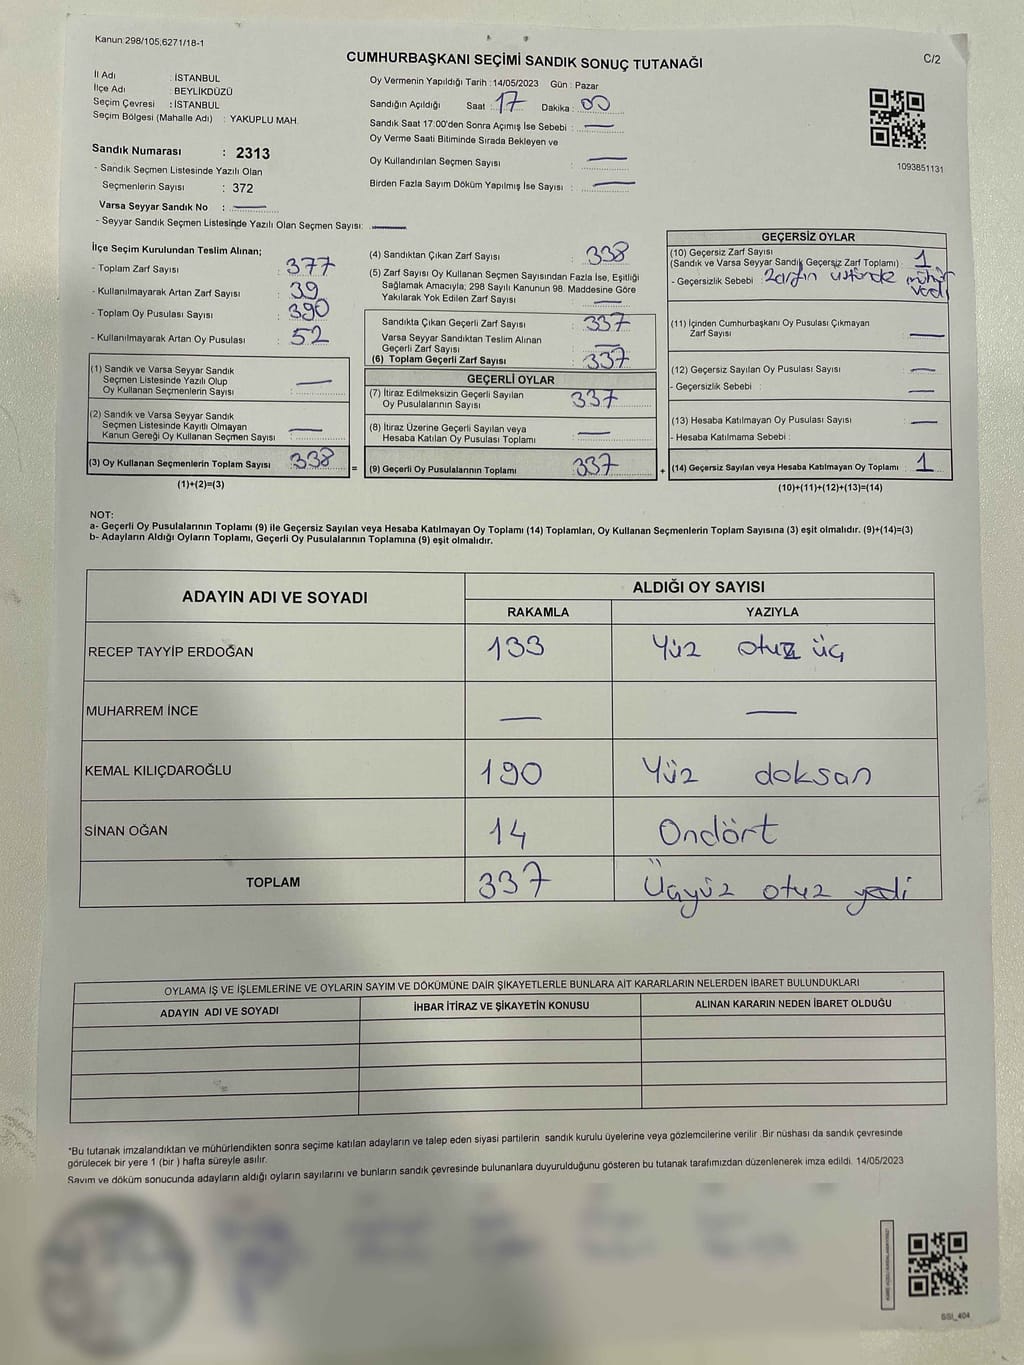 Kanun 298/105;6271/18-1
CUMHURBAŞKANI SEÇİMİ SANDIK SONUÇ TUTANAĞI
C/2
İl Adı : İSTANBUL
İlçe Adı : BEYLİKDÜZÜ
Seçim Çevresi : İSTANBUL
Seçim Bölgesi (Mahalle Adı) : YAKUPLU MAH.
Sandık Numarası : 2313
- Sandık Seçmen Listesinde Yazılı Olan
Seçmenlerin Sayısı : 372
Varsa Seyyar Sandık No : —
- Seyyar Sandık Seçmen Listesinde Yazılı Olan Seçmen Sayısı: —
Oy Vermenin Yapıldığı Tarih : 14/05/2023 Gün : Pazar
Sandığın Açıldığı Saat : 17 Dakika : 00
Sandık Saat 17:00'den Sonra Açımış İse Sebebi : —
Oy Verme Saati Bitiminde Sırada Bekleyen ve
Oy Kullandırılan Seçmen Sayısı : —
Birden Fazla Sayım Döküm Yapılmış İse Sayısı : —
1093851131
İlçe Seçim Kurulundan Teslim Alınan;
- Toplam Zarf Sayısı : 377
- Kullanılmayarak Artan Zarf Sayısı : 39
- Toplam Oy Pusulası Sayısı : 390
- Kullanılmayarak Artan Oy Pusulası : 52
(1) Sandık ve Varsa Seyyar Sandık
Seçmen Listesinde Yazılı Olup
Oy Kullanan Seçmenlerin Sayısı : —
(2) Sandık ve Varsa Seyyar Sandık
Seçmen Listesinde Kayıtlı Olmayan
Kanun Gereği Oy Kullanan Seçmen Sayısı : —
(3) Oy Kullanan Seçmenlerin Toplam Sayısı : 338
(1)+(2)=(3)
(4) Sandıktan Çıkan Zarf Sayısı : 338
(5) Zarf Sayısı Oy Kullanan Seçmen Sayısından Fazla İse, Eşitliği
Sağlamak Amacıyla; 298 Sayılı Kanunun 98. Maddesine Göre
Yakılarak Yok Edilen Zarf Sayısı : —
Sandıkta Çıkan Geçerli Zarf Sayısı : 337
Varsa Seyyar Sandıktan Teslim Alınan
Geçerli Zarf Sayısı : —
(6) Toplam Geçerli Zarf Sayısı : 337
GEÇERLİ OYLAR
(7) İtiraz Edilmeksizin Geçerli Sayılan
Oy Pusulalarının Sayısı : 337
(8) İtiraz Üzerine Geçerli Sayılan veya
Hesaba Katılan Oy Pusulası Toplamı : —
= (9) Geçerli Oy Pusulalarının Toplamı : 337 +
GEÇERSİZ OYLAR
(10) Geçersiz Zarf Sayısı
(Sandık ve Varsa Seyyar Sandık Geçersiz Zarf Toplamı) : 1
- Geçersizlik Sebebi : Zarfın üstünde mühür
vardı
(11) İçinden Cumhurbaşkanı Oy Pusulası Çıkmayan
Zarf Sayısı : —
(12) Geçersiz Sayılan Oy Pusulası Sayısı : —
- Geçersizlik Sebebi : —
(13) Hesaba Katılmayan Oy Pusulası Sayısı : —
- Hesaba Katılmama Sebebi :
(14) Geçersiz Sayılan veya Hesaba Katılmayan Oy Toplamı : 1
(10)+(11)+(12)+(13)=(14)
NOT:
a- Geçerli Oy Pusulalarının Toplamı (9) ile Geçersiz Sayılan veya Hesaba Katılmayan Oy Toplamı (14) Toplamları, Oy Kullanan Seçmenlerin Toplam Sayısına (3) eşit olmalıdır. (9)+(14)=(3)
b- Adayların Aldığı Oyların Toplamı, Geçerli Oy Pusulalarının Toplamına (9) eşit olmalıdır.
ADAYIN ADI VE SOYADI
ALDIĞI OY SAYISI
RAKAMLA YAZIYLA
RECEP TAYYİP ERDOĞAN 133 Yüz otuz üç
MUHARREM İNCE — —
KEMAL KILIÇDAROĞLU 190 Yüz doksan
SİNAN OĞAN 14 Ondört
TOPLAM 337 Üçyüz otuz yedi
OYLAMA İŞ VE İŞLEMLERİNE VE OYLARIN SAYIM VE DÖKÜMÜNE DAİR ŞİKAYETLERLE BUNLARA AİT KARARLARIN NELERDEN İBARET BULUNDUKLARI
ADAYIN ADI VE SOYADI İHBAR İTİRAZ VE ŞİKAYETİN KONUSU ALINAN KARARIN NEDEN İBARET OLDUĞU
*Bu tutanak imzalandıktan ve mühürlendikten sonra seçime katılan adayların ve talep eden siyasi partilerin sandık kurulu üyelerine veya gözlemcilerine verilir. Bir nüshası da sandık çevresinde
görülecek bir yere 1 (bir ) hafta süreyle asılır.
Sayım ve döküm sonucunda adayların aldığı oyların sayılarını ve bunların sandık çevresinde bulunanlara duyurulduğunu gösteren bu tutanak tarafımızdan düzenlenerek imza edildi. 14/05/2023
SSI_404